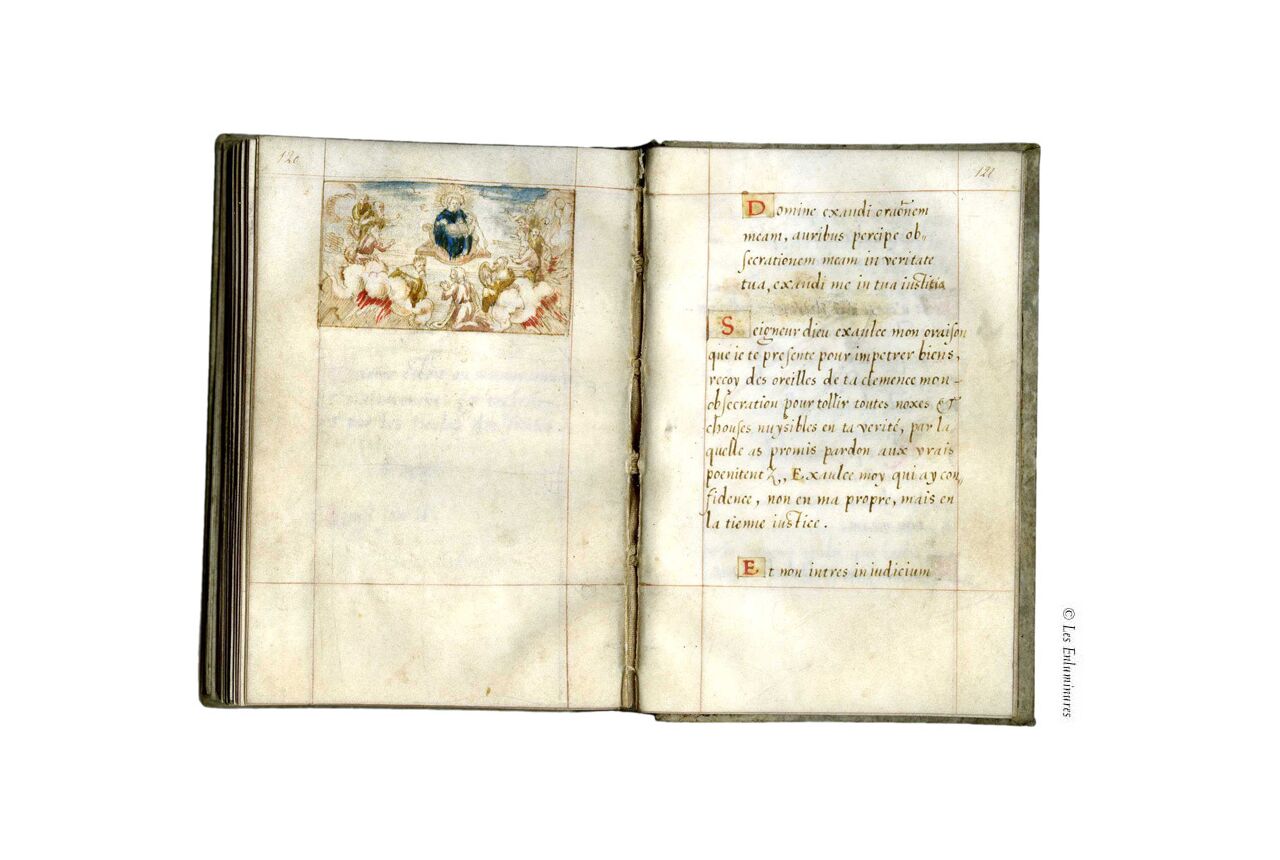 120
121
Domine exaudi orao͂nem
meam, auribus percipe ob„
secrationem meam in veritate
tua, exaudi me in tua iustitia
Seigneur dieu exaulce mon oraison
que ie te presente pour impetrer biens,
recoy des oreilles de ta clemence mon-
obsecration pour tollir toutes noxes &
chouses nuysibles en ta verité, par la
quelle as promis pardon aux vrais
poenitentz„ Exaulce moy qui ay con„
fidence, non en ma propre, mais en
la tienne iustice.
Et non intres in iudicium
© Les Enluminures